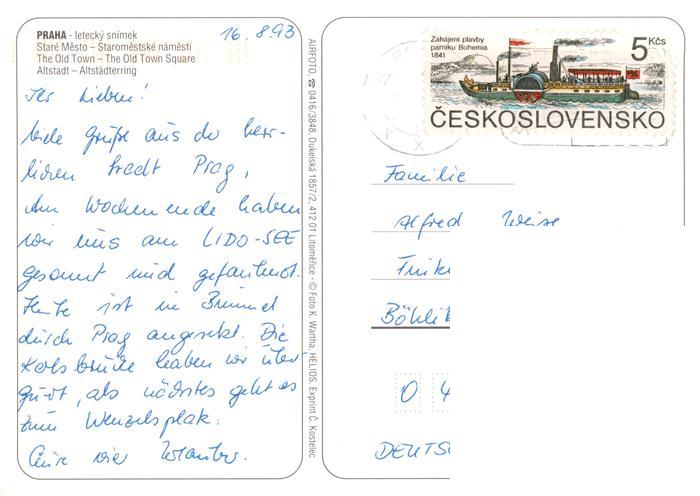 PRAHA - letecký snímek
Staré Město – Staroměstské náměstí
The Old Town – The Old Town Square
Altstadt – Altstädterring
16.8.93
Ihr Lieben!
viele Grüße aus der herr-
lichen Stadt Prag,
Am Wochenende haben
wir uns am LIDO-SEE
gesonnt und gefaulenzt.
Heute ist ein Bummel
durch Prag angesetzt. Die
Karlsbrücke haben wir über-
quert, als nächstes geht es
zum Wenzelsplatz.
AIRFOTO, ☎ 0416/3848, Dukelská 1857/2, 412 01 Litoměřice - © Foto K. Wartha, HELIOS, Exprint Č. Kostelec
Zahájení plavby
parníku Bohemia
1841
5 Kčs
ČESKOSLOVENSKO
Familie
Alfred Weise
Böhlit
0 4
DEUTS